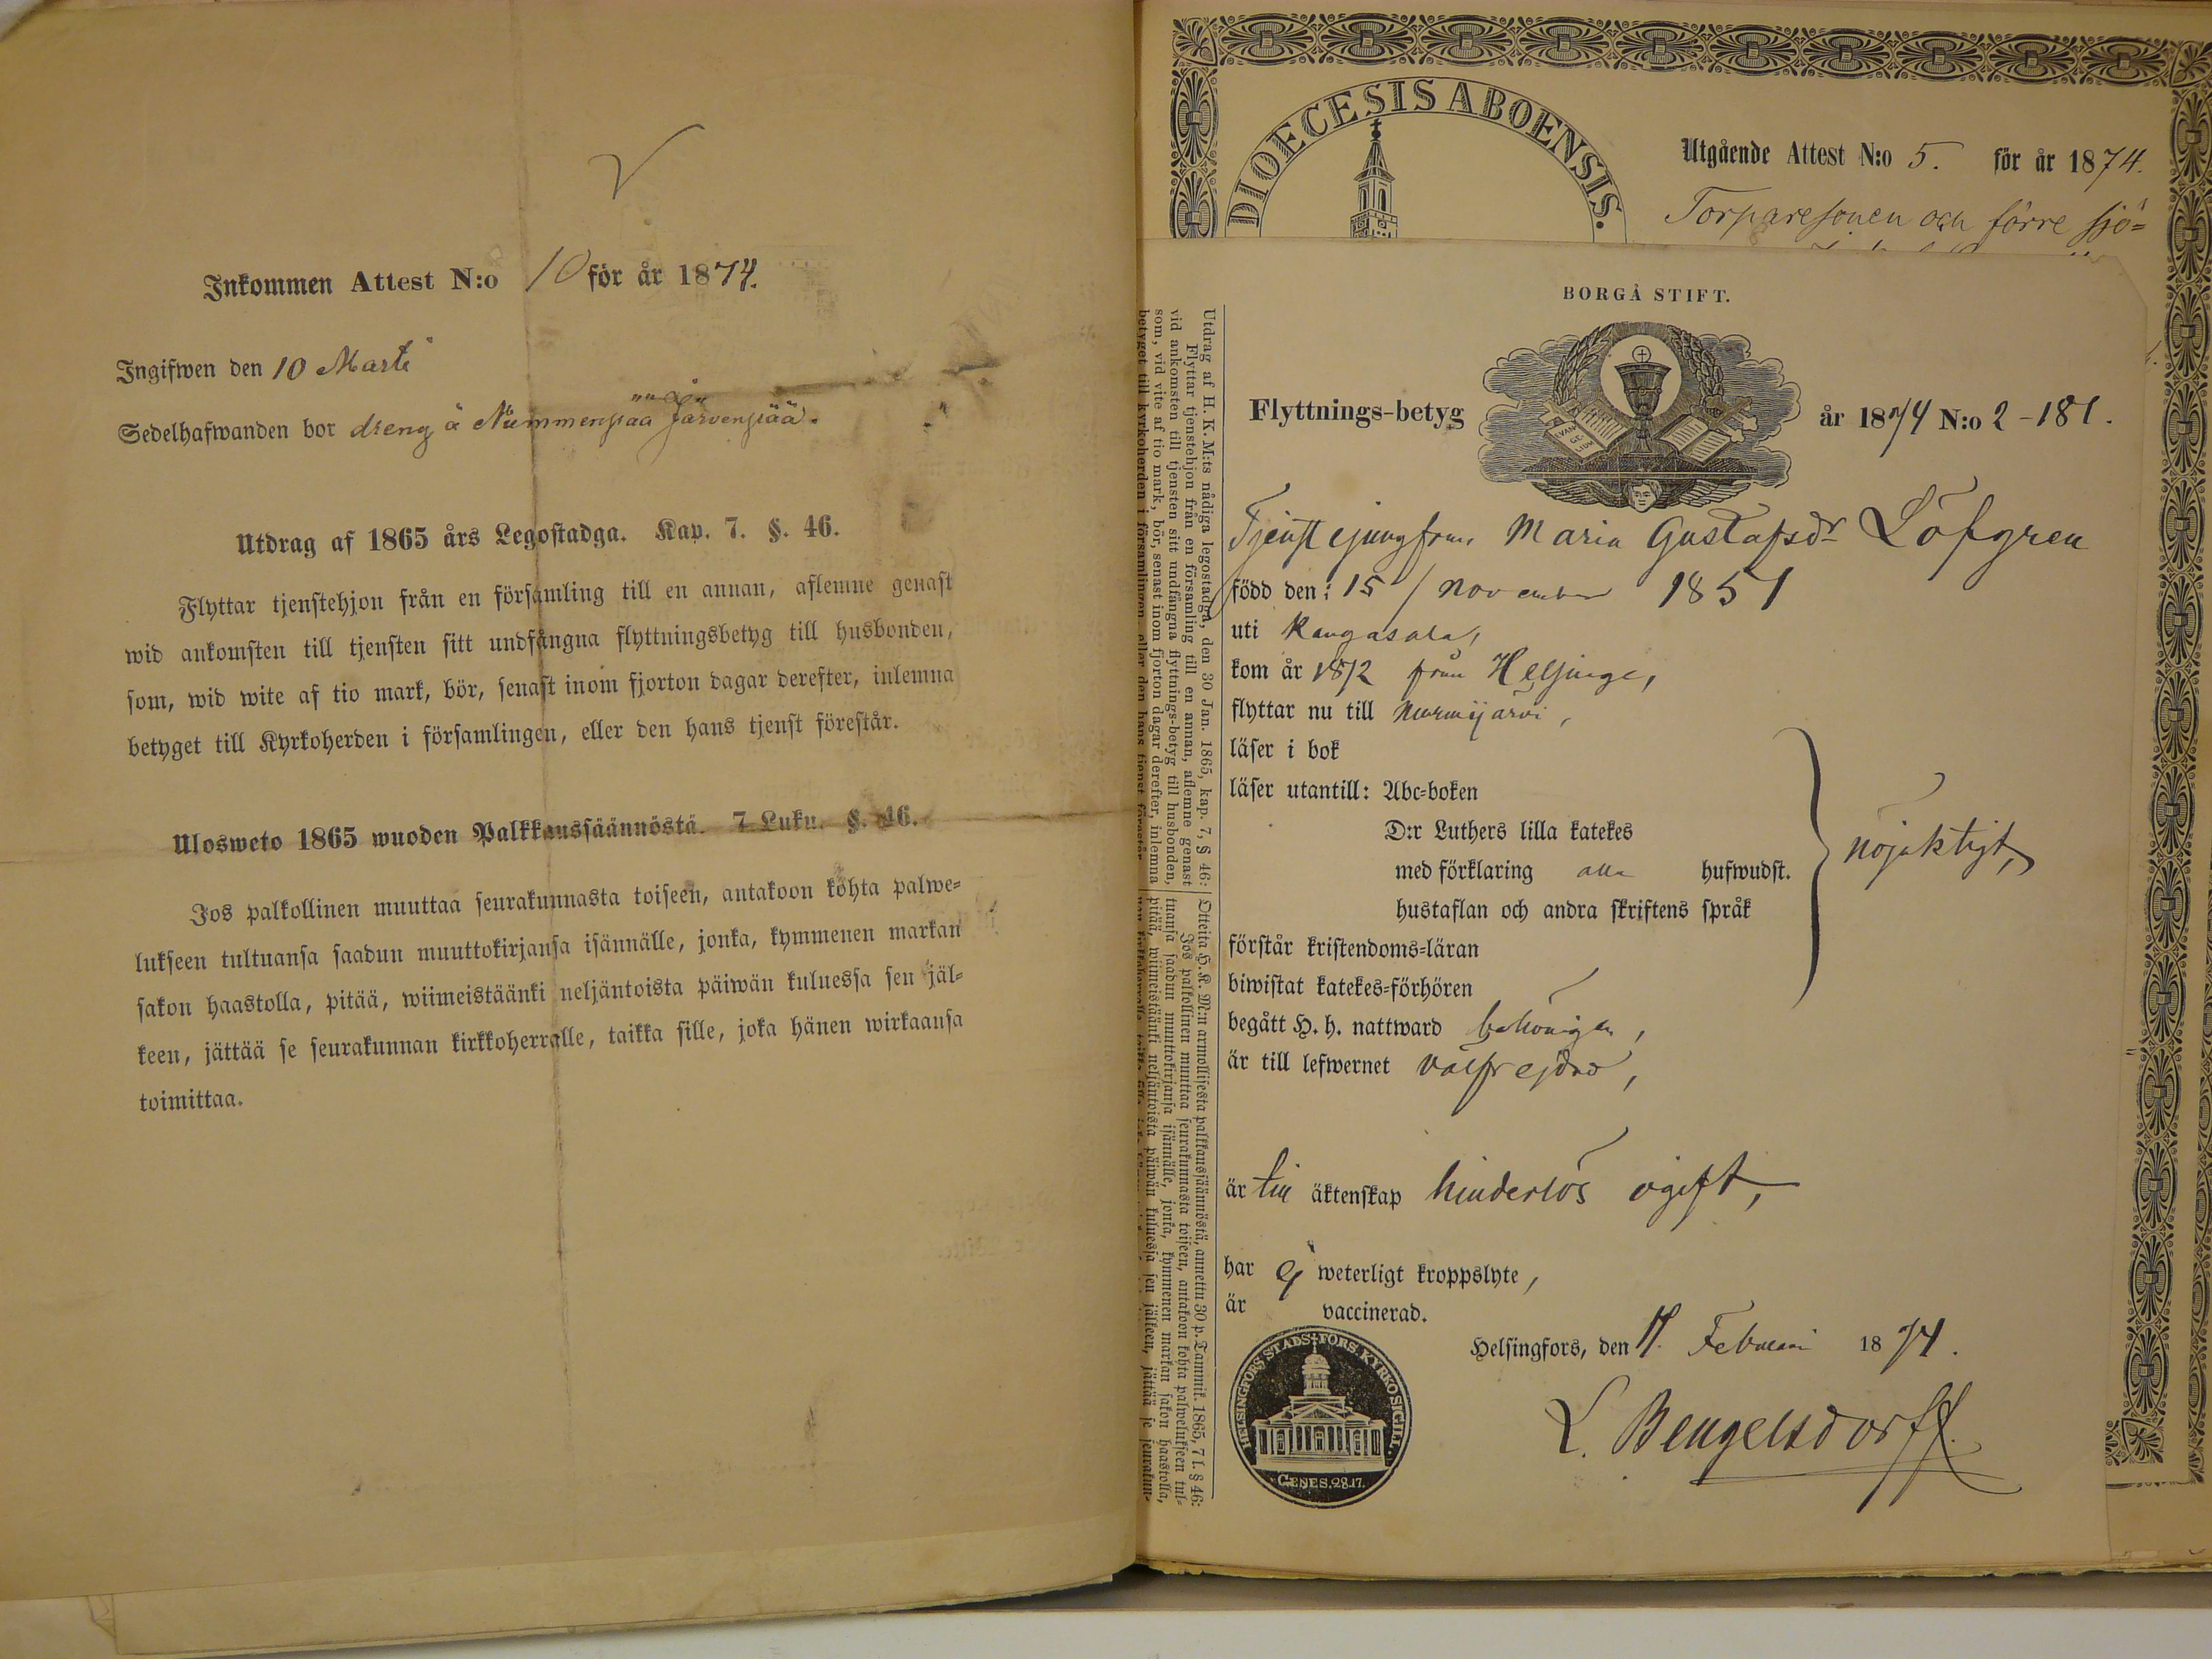 Inkommen Attest N:o 10 för år 1874.
Ingifwen den 10 Marti
Sedelhafwanden bor dreng å Nummenpää Järvenpää.
Utdrag af 1865 års Legostadga. Kap. 7. §. 46.
Flyttar tjenstehjon från en församling till en annan, aflemne genast
wid ankomsten till tjensten sitt undfångna flyttningsbetyg till husbonden,
som, wid wite af tio mark, bör, senast inom fjorton dagar derefter, inlemna
betyget till Kyrkoherden i församlingen, eller den hans tjenst förestår.
Ulosweto 1865 wuoden Palkkaussäännöstä. 7 Luku. §. 46.
Jos palkollinen muuttaa seurakunnasta toiseen, antakoon kohta palwe-
lukseen tultuansa saadun muuttokirjansa isännälle, jonka, kymmenen markan
sakon haastolla, pitää, wiimeistäänki neljäntoista päiwän kuluessa sen jäl-
keen, jättää se seurakunnan kirkkoherralle, taikka sille, joka hänen wirkaansa
toimittaa.
DIOECESIS ABOENSIS.
Utgående Attest N:o 5. för år 1874.
Torparesonen och förre sjö-
Utdrag af H. K. M:ts nådiga legostadga, den 30 Jan. 1865, kap. 7, § 46:
Flyttar tjenstehjon från en församling till en annan, aflemne genast
vid ankomsten till tjensten sitt undfångna flyttnings-betyg till husbonden,
som, vid vite af tio mark, bör, senast inom fjorton dagar derefter, inlemna
betyget till kyrkoherden i församlingen, eller den hans tjenst förestår
Otteita H. K. M:n armollisesta palkkaussäännöstä, annettu 30 p. Tammik. 1865, 7 l. § 46:
Jos palkollinen muuttaa seurakunnasta toiseen, antakoon kohta palwelukseen tul-
tuansa saadun muuttokirjansa isännälle, jonka, kymmenen markan sakon haastolla,
pitää, wiimeistäänki neljäntoista päiwän kuluessa sen jälkeen, jättää se seurakun-
BORGÅ STIFT.
EVAN
GE
LIUM
Flyttnings-betyg år 1874 N:o 2-181.
Tjenstejungfrun Maria Gustafsdr Löfgren
född den: 15/november 1851
uti Kangasala,
kom år 1872 från Helsinge,
flyttar nu till Nurmijärvi,
läser i bok
läser utantill: Abc-boken
D:r Luthers lilla katekes
med förklaring alla hufwudst.
hustaflan och andra skriftens språk
nöjaktigt,
förstår kristendoms-läran
biwistat katekes-förhören
begått H. h. nattward behörigen,
är till lefwernet välfrejdad,
är till äktenskap hinderlös ogift,
har ej weterligt kroppslyte,
är vaccinerad.
Helsingfors, den Februari 1874.
L. Bengelsdorff.
HELSINGFORS STADS FÖRS. KYRKOSIGILL.
GENES. 28.17.